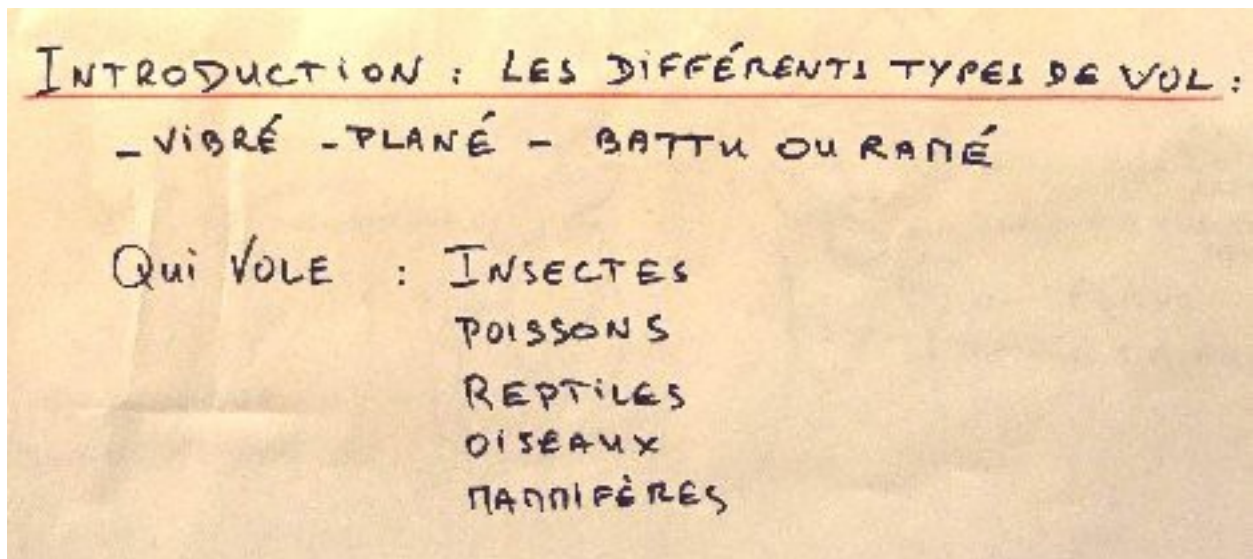 INTRODUCTION : LES DIFFÉRENTS TYPES DE VOL :
- VIBRÉ - PLANÉ - BATTU OU RAMÉ
QUI VOLE : INSECTES
POISSONS
REPTILES
OISEAUX
MAMMIFÈRES